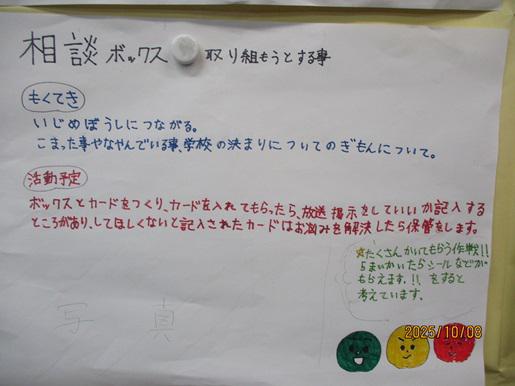 相談ボックス 取り組もうとする事
もくてき
いじめぼうしにつながる。
こまった事やなやんでいる事、学校の決まりについてのぎもんについて。
活動予定
ボックスとカードをつくり、カードを入れてもらったら、放送 掲示をしていいか記入する
ところがあり、してほしくないと記入されたカードはお悩みを解決したら保管をします。
☆たくさんかいてもらう作戦!!
5まいかいたらシールなどが
もらえます。!! をすると
考えています。
写 真
2025/10/08